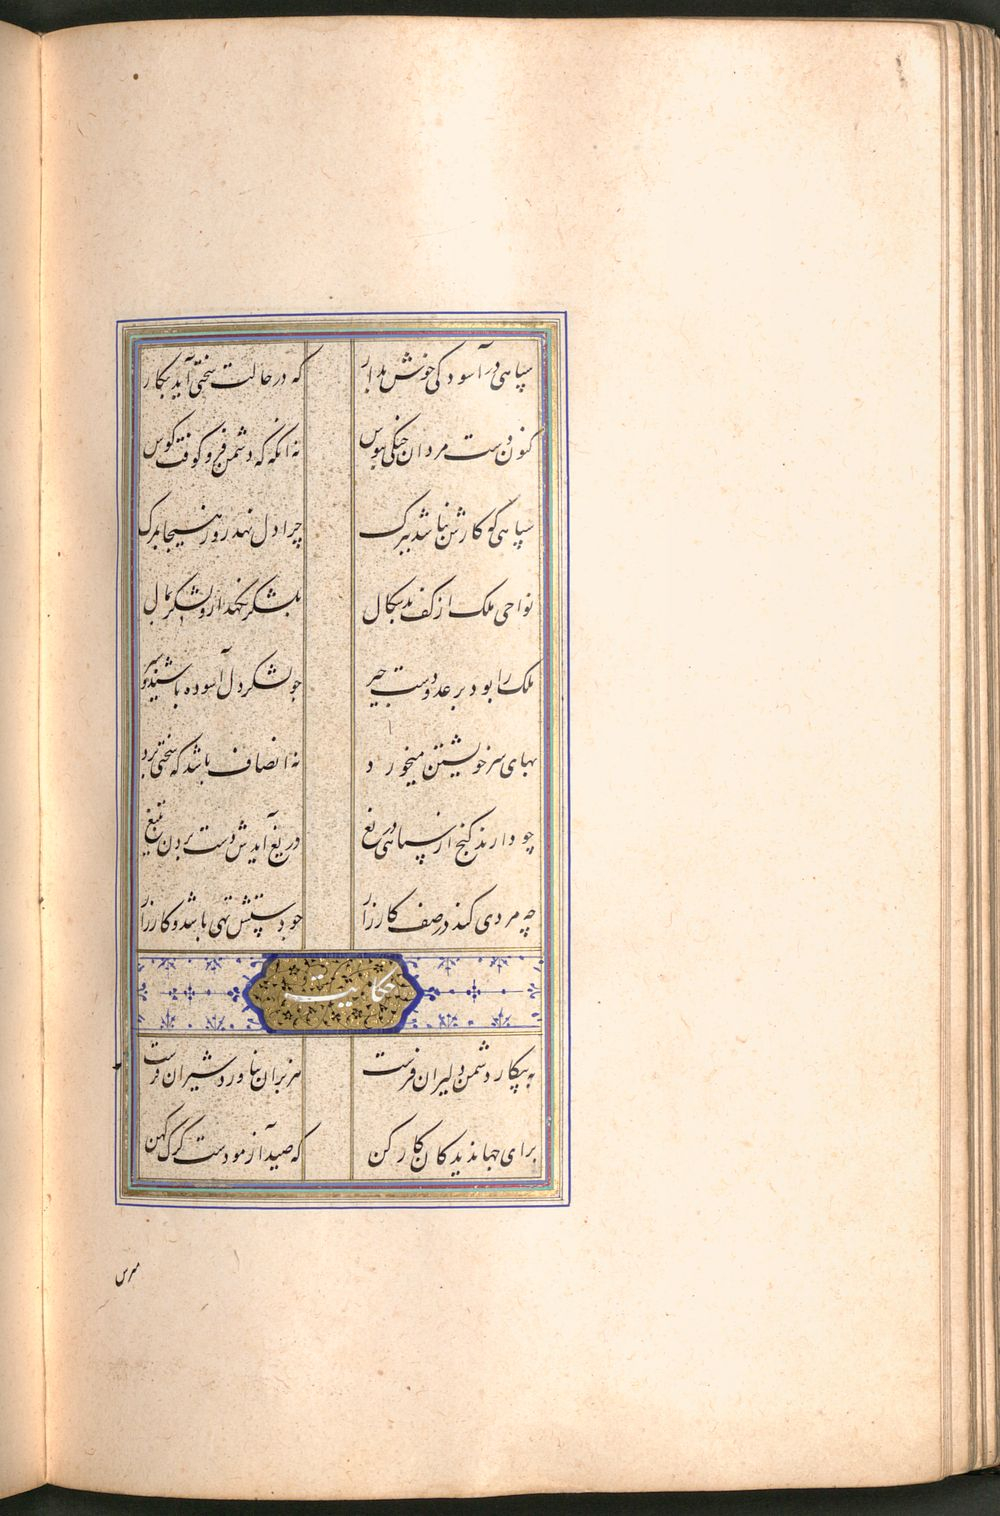 سپاهی در آسودگی خوش بدار که در حالت سختی آید بکار
کنون دست مردان جنگی ببوس نه آنکه که دشمن فرو کوفت کوس
سپاهی کو کارش نباشد ببرک چرا دل نهد روز هیجا بمرک
نواحی ملک از کف بدسکال بلشکر نکهدار و لشکر بمال
ملک را بود بر عدو دست چیر چو لشکر دل آسوده باشند و سیر
بهای سر خویشتن میخورد نه انصاف باشد که سختی برد
چو دارند کنج از سپاهی دریغ دریغ آیدش دست بردن بتیغ
چه مردی کند در صف کارزار چو دستش تهی باشد و کار زار
حکایت
به پیکار دشمن دلیران فرست هزبران بناورد شیران فرست
برای جهاندیدکان کار کن که صید آزمودست کرک کهن